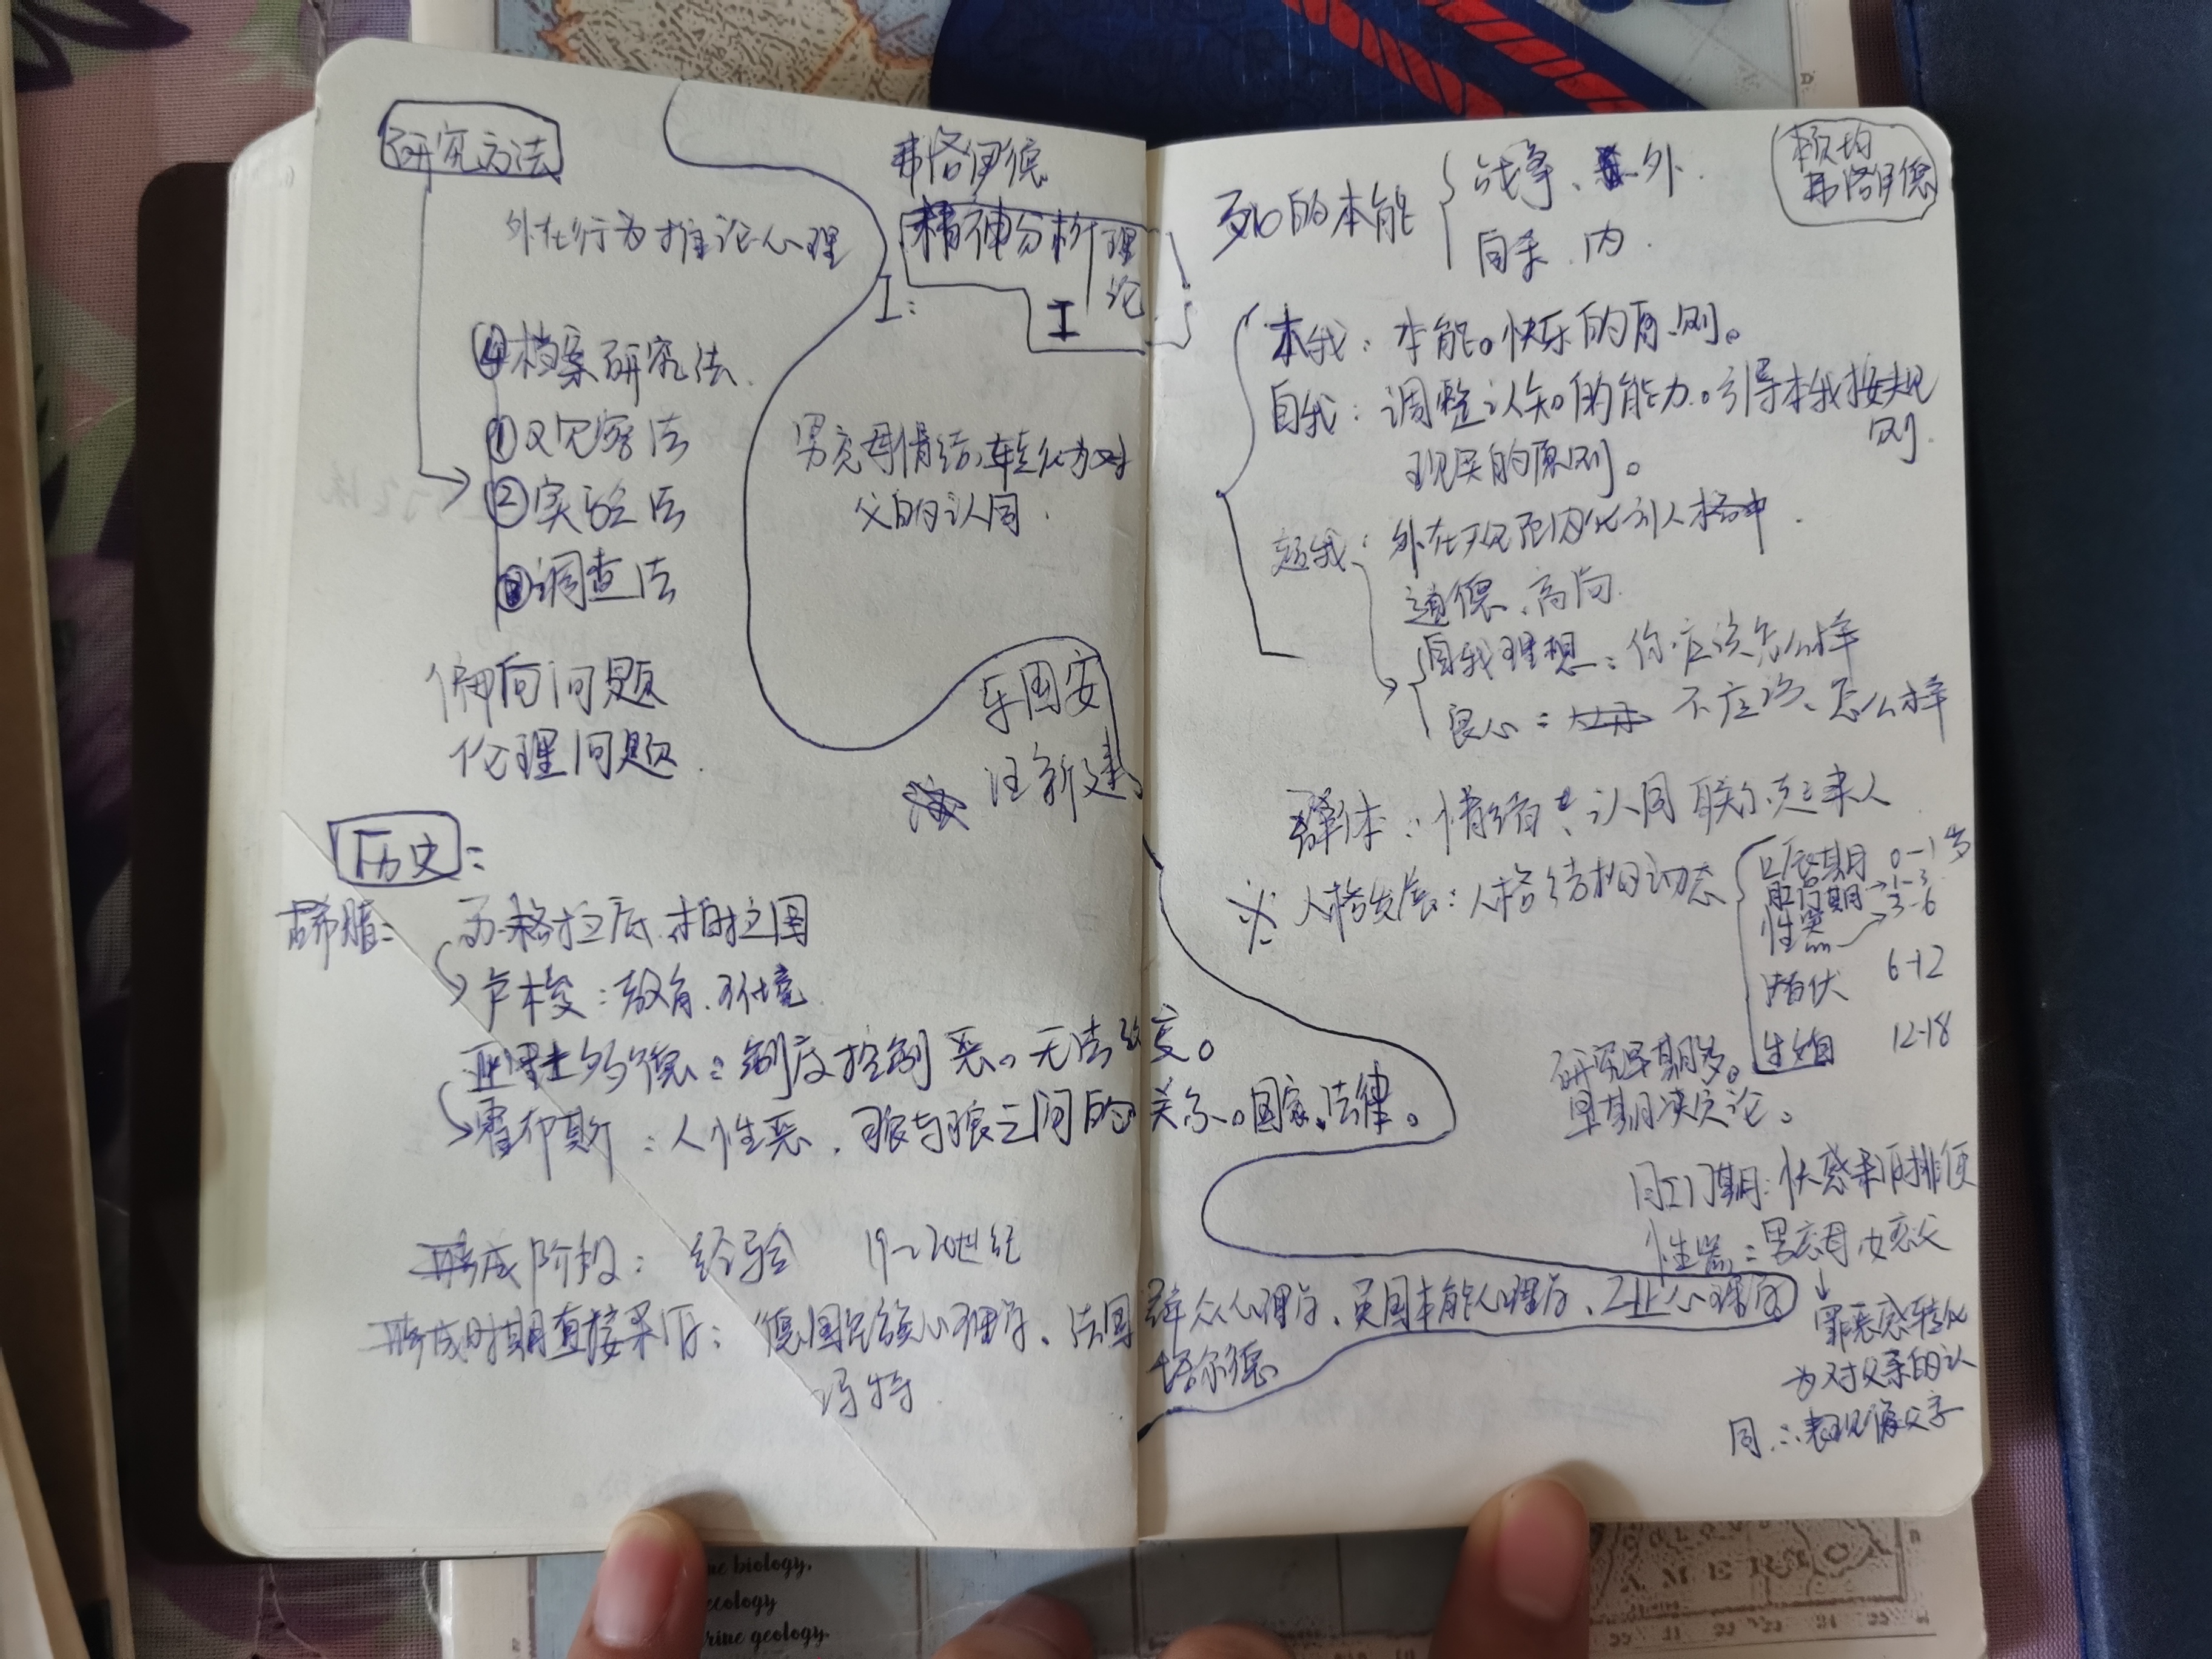 研究方法
外在行为推论心理
④档案研究法.
①观察法
②实验法
③调查法
偏向问题
伦理问题.
弗洛伊德
精神分析理论
I:
I
男恋母情结,转化为对
父的认同.
乐国安
汪新建
历史:
古希腊: 苏格拉底.柏拉图
卢梭:教育.环境.
亚里士多德:制度控制恶。无法改变。
霍布斯:人性恶.狼与狼之间的关系。国家、法律。
形成阶段: 经验 19-20世纪
形成时期直接来源:德国民族心理学、法国群众心理学、英国本能心理学、工业心理学
冯特.
塔尔德
死的本能
战争、外.
自杀.内.
本页均
弗洛伊德
本我:本能。快乐的原则。
自我:调整认知的能力。引导本我按规则.
现实的原则。
超我:外在规范内化到人格中.
道德、高尚.
自我理想:你应该怎么样
良心: 不应该、怎么样
群体:情绪、认同联系起来人
※人格发展:人格结构的动态
口唇期 0-1岁
肛门期→1-3
性器→3-6
潜伏 6-12
生殖 12-18
研究早期多。
早期决定论。
肛门期:快感来源排便
性器:男恋母,女恋父
↓
罪恶感转化
为对父亲的认
同.∴表现像父亲
ne biology,
ecology
rine geology.
AMERICA